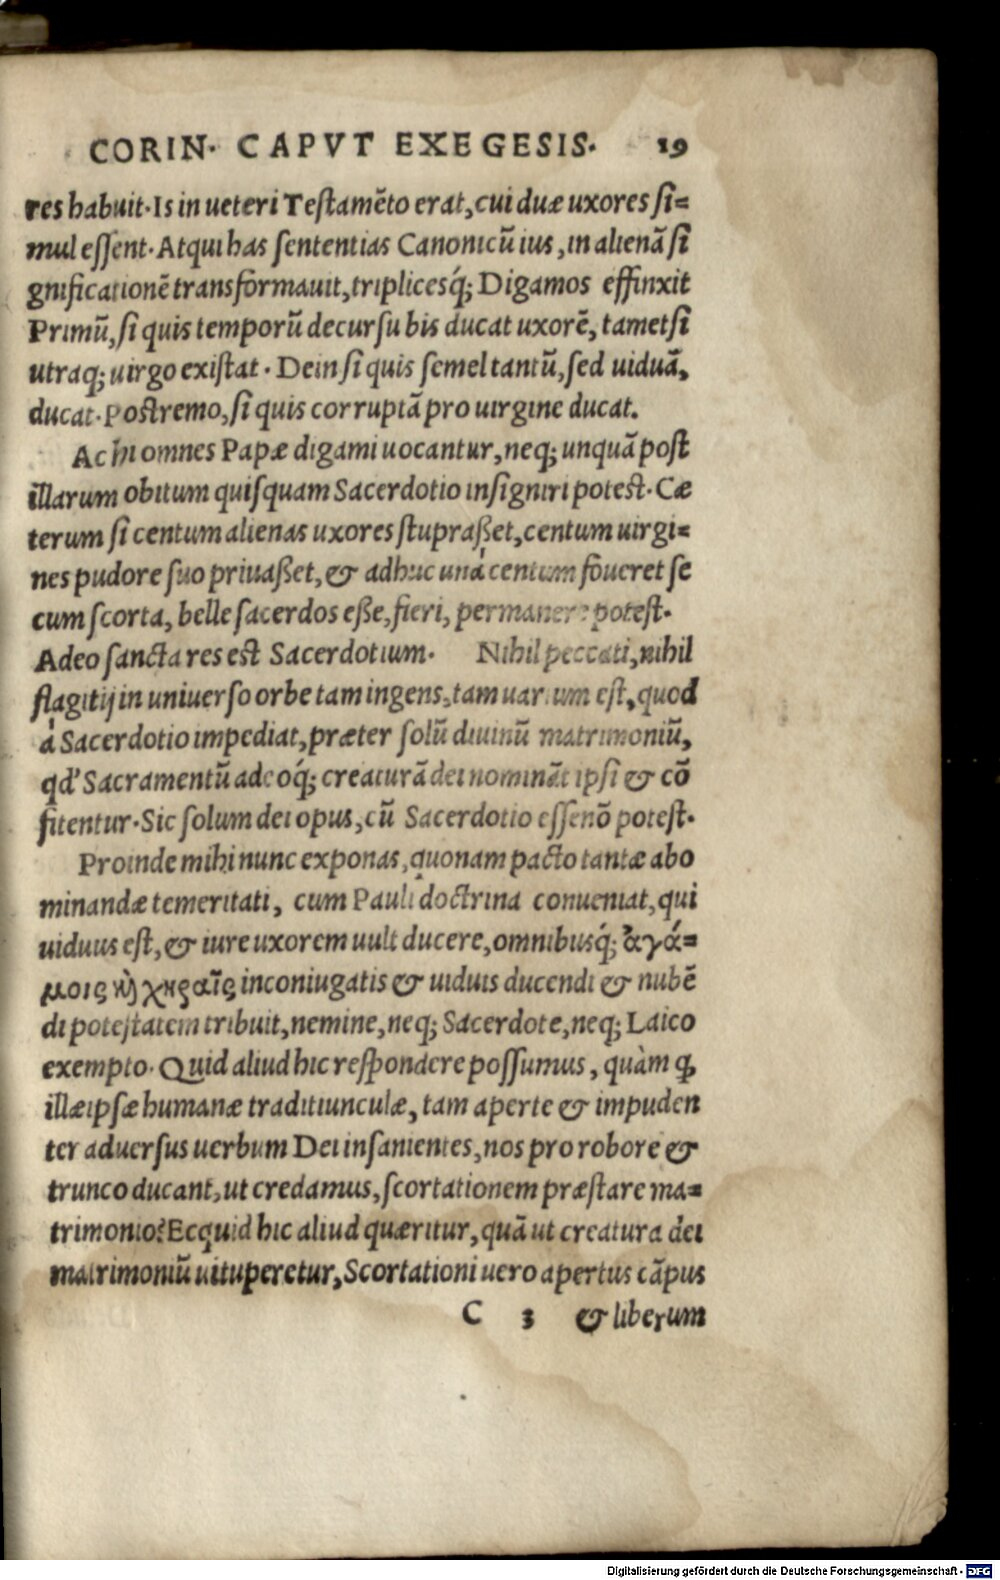 CORIN. CAPVT EXEGESIS. 19
res habuit. Is in ueteri Testamẽto erat, cui duæ uxores si=
mul essent. Atqui has sententias Canonicũ ius, in alienã si
gnificationẽ transformauit, triplicesq́; Digamos effinxit
Primũ, si quis temporũ decursu bis ducat uxorẽ, tametsi
utraq; uirgo existat. Dein si quis semel tantũ, sed uiduã,
ducat. Postremo, si quis corruptã pro uirgine ducat.
Ac hi omnes Papæ digami uocantur, neq; unquã post
illarum obitum quisquam Sacerdotio insigniri potest. Cæ
terum si centum alienas uxores stuprasset, centum uirgi=
nes pudore suo priuasset, & adhuc unà centum foueret se
cum scorta, belle sacerdos esse, fieri, permanere potest.
Adeo sancta res est Sacerdotium. Nihil peccati, nihil
flagitij in uniuerso orbe tam ingens, tam uarium est, quod
à Sacerdotio impediat, præter solũ diuinũ matrimoniũ,
qd' Sacramentũ adeoq́; creaturã dei nominãt ipsi & cõ
fitentur. Sic solum dei opus, cũ Sacerdotio esse nõ potest.
Proinde mihi nunc exponas, quonam pacto tantæ abo
minandæ temeritati, cum Pauli doctrina conueniat, qui
uiduus est, & iure uxorem uult ducere, omnibusq́; ἀγά=
μοις κ̀ χηραῖς inconiugatis & uiduis ducendi & nubẽ
di potestatem tribuit, nemine, neq; Sacerdote, neq; Laico
exempto. Quid aliud hic respondere possumus, quàm ꝙ
illæ ipsæ humanæ traditiunculæ, tam aperte & impuden
ter aduersus uerbum Dei insanientes, nos pro robore &
trunco ducant, ut credamus, scortationem præstare ma=
trimonio? Ecquid hic aliud quæritur, quã ut creatura dei
matrimoniũ uituperetur, Scortationi uero apertus cãpus
C 3 & liberum
Digitalisierung gefördert durch die Deutsche Forschungsgemeinschaft - DFG